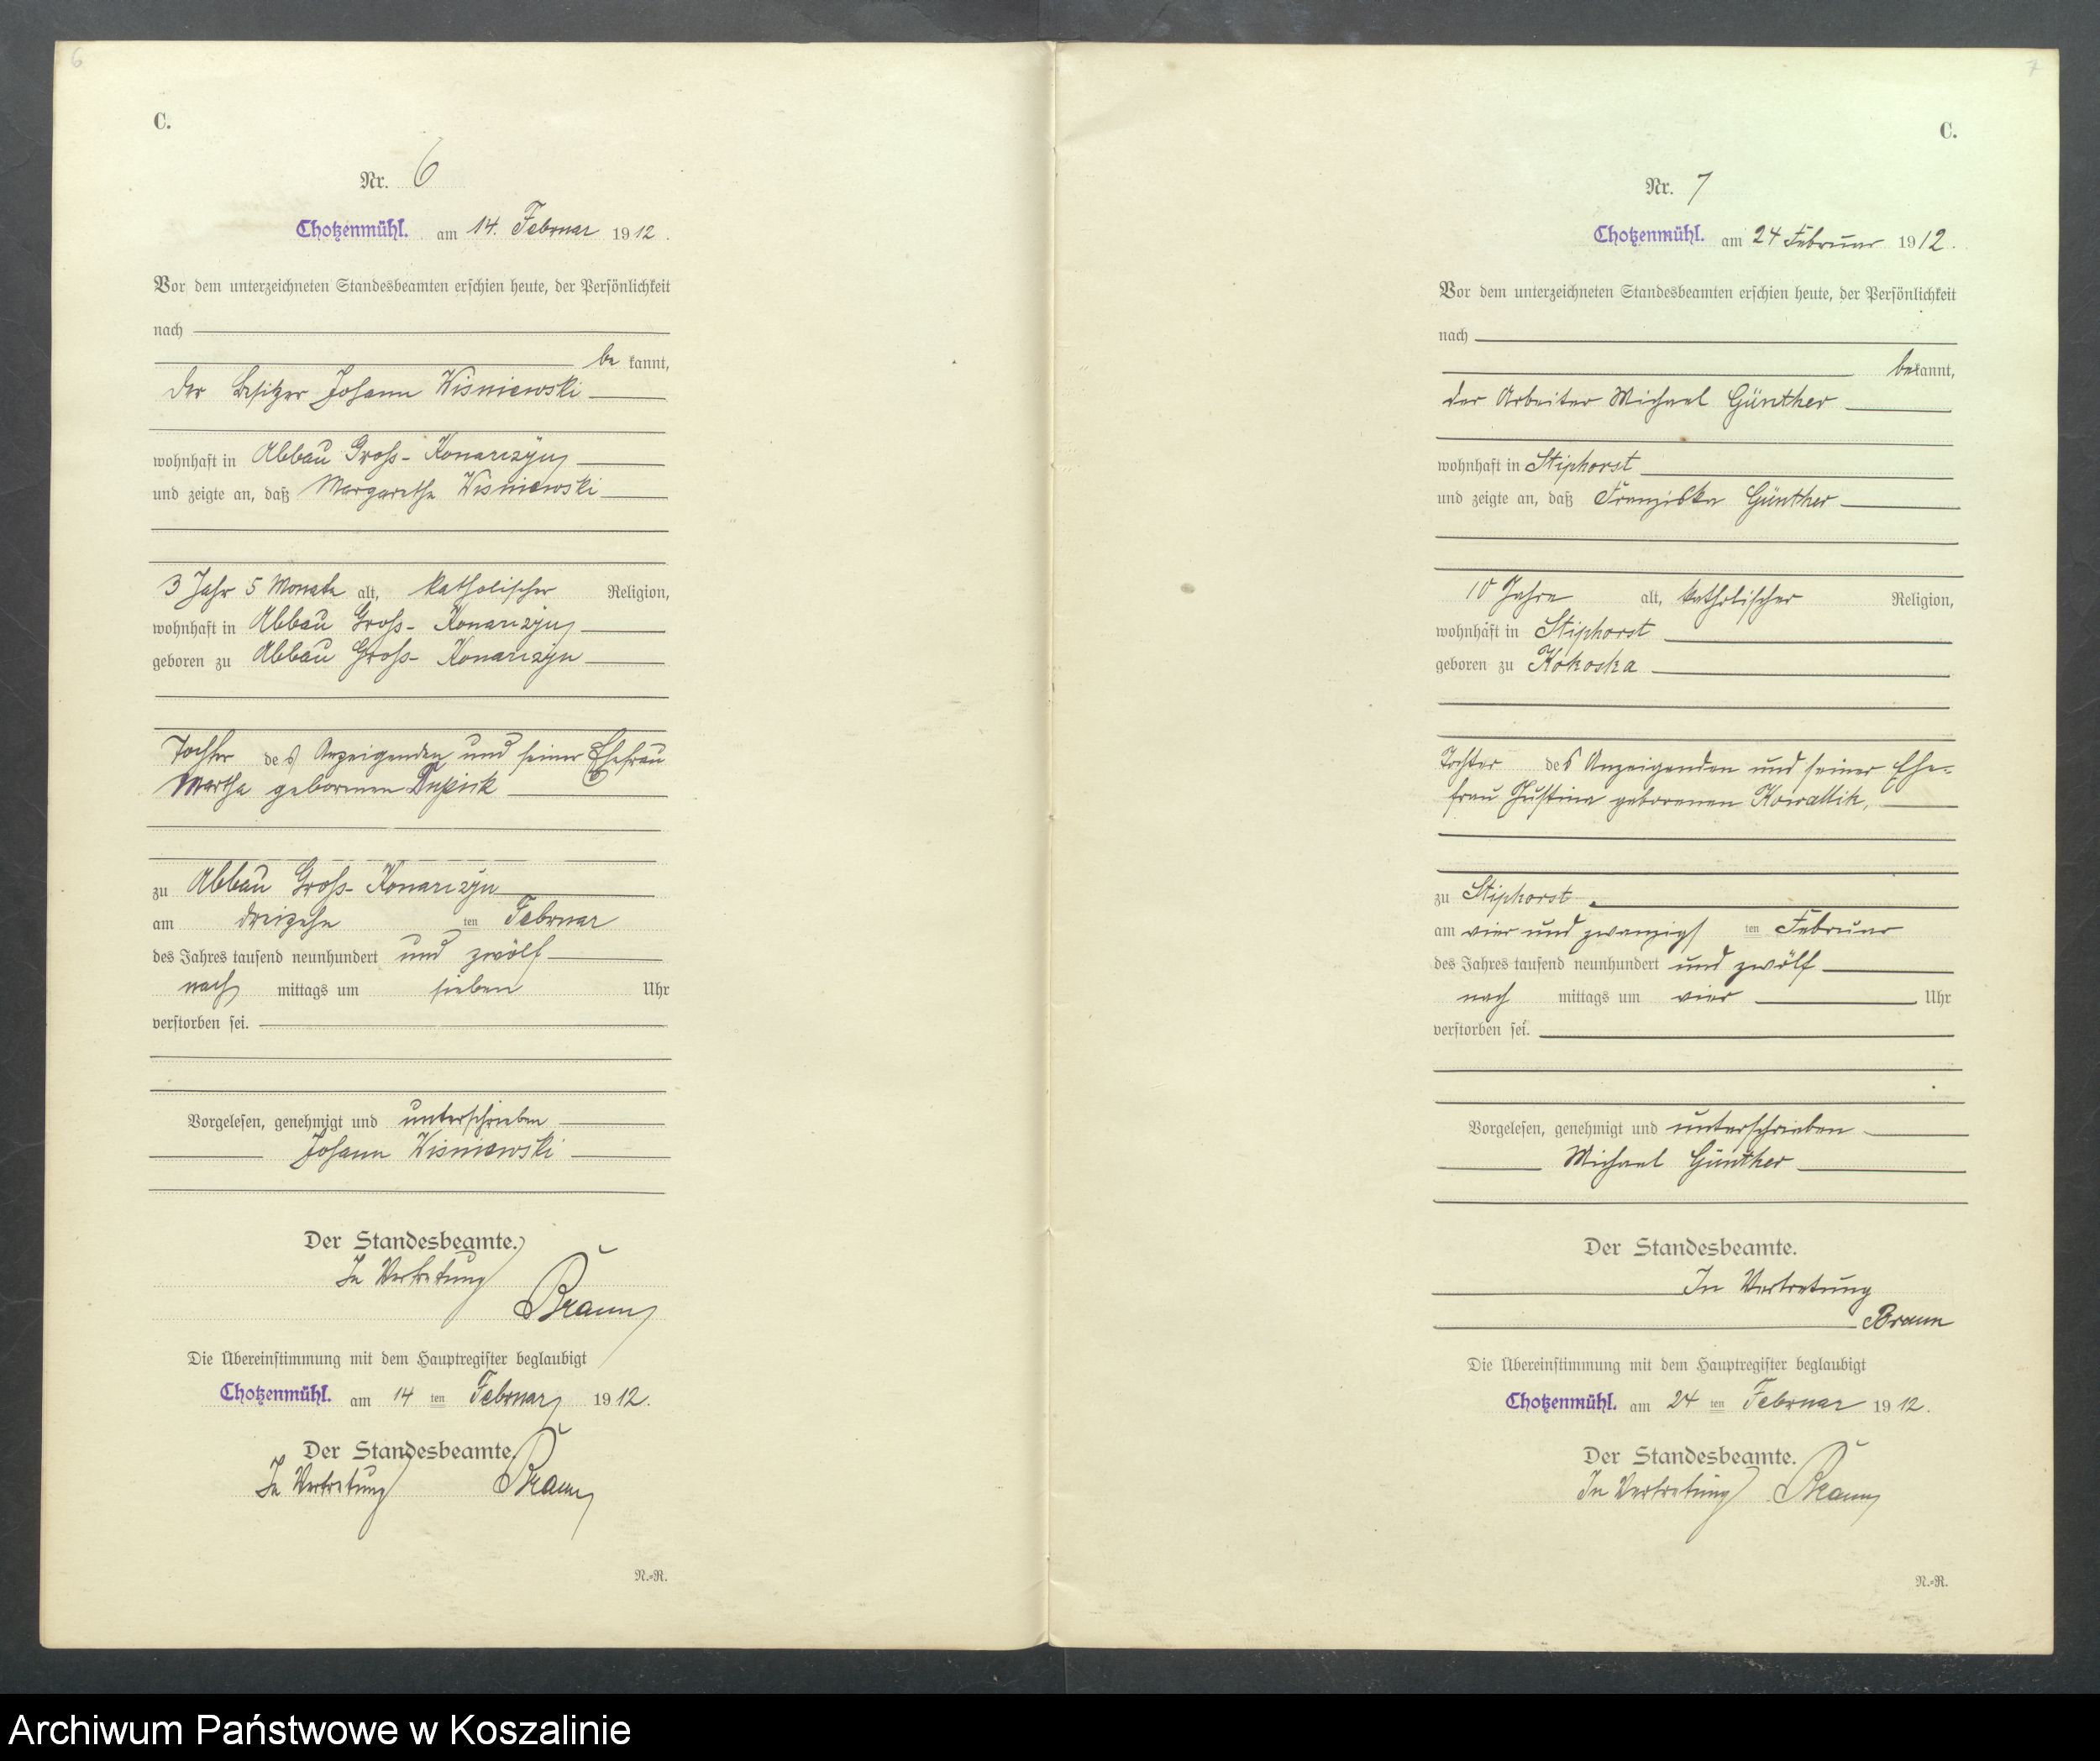 6
C.
Nr. 6
Chotzenmühl. am 14. Februar 1912.
Vor dem unterzeichneten Standesbeamten erschien heute, der Persönlichkeit
nach
be kannt,
der Besitzer Johann Wisniewski
wohnhaft in Abbau Gross-Konarczyn
und zeigte an, daß Margarethe Wisniewski
3 Jahr 5 Monate alt, katholischer Religion,
wohnhaft in Abbau Gross-Konarczyn
geboren zu Abbau Gross-Konarczyn
Tochter des Anzeigenden und seiner Ehefrau
Martha geborenen
zu Abbau Gross-Konarczyn
am dreizehn ten Februar
des Jahres tausend neunhundert und zwölf
nach mittags um sieben Uhr
verstorben sei.
Vorgelesen, genehmigt und unterschrieben
Johann Wisniewski
Der Standesbeamte.
In Vertretung
Braun
Die Übereinstimmung mit dem Hauptregister beglaubigt
Chotzenmühl. am 14 ten Februar 1912.
Der Standesbeamte.
In Vertretung Braun
N.-R.
7
C.
Nr. 7
Chotzenmühl. am 24 Februar 1912.
Vor dem unterzeichneten Standesbeamten erschien heute, der Persönlichkeit
nach
bekannt,
der Arbeiter Michael Günther
wohnhaft in Stiphorst
und zeigte an, daß Franziska Günther
10 Jahre alt, katholischer Religion,
wohnhaft in Stiphorst
geboren zu Kokoska
Tochter des Anzeigenden und seiner Ehe-
frau Justina geborenen Kowallik,
zu Stiphorst
am vier und zwanzigs ten Februar
des Jahres tausend neunhundert und zwölf
nach mittags um vier Uhr
verstorben sei.
Vorgelesen, genehmigt und unterschrieben
Michael Günther
Der Standesbeamte.
In Vertretung
Braun
Die Übereinstimmung mit dem Hauptregister beglaubigt
Chotzenmühl. am 24 ten Februar 1912.
Der Standesbeamte.
In Vertretung Braun
N.-R.
Archiwum Państwowe w Koszalinie